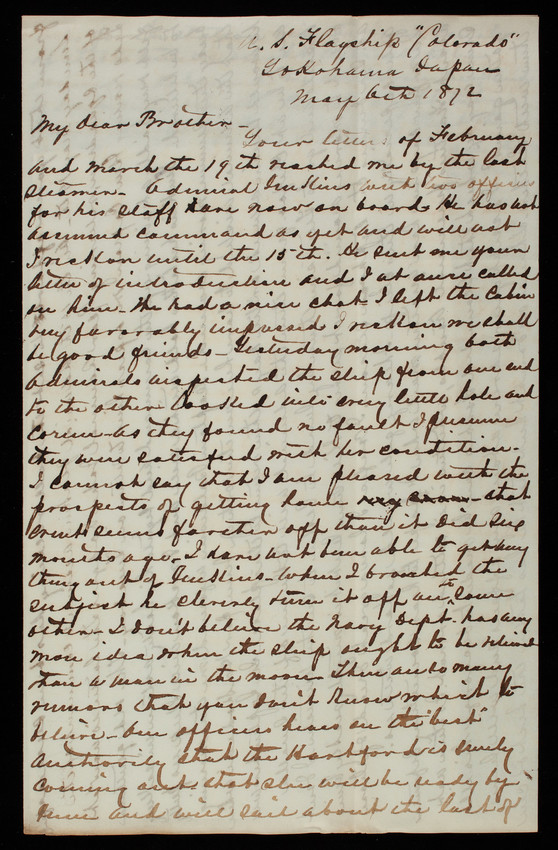 U. S. Flagship "Colorado"
Yokohama Japan
May 6th 1872
My dear Brother -
Your letter of February
and march the 19th reached me by the last
steamer - Admiral Jenkins with two officers
for his staff are now on board. He has not
assumed command as yet and will not
I reckon until the 15th. He sent me your
letter of introduction and I at once called
on him - We had a nice chat I left the Cabin
very favorably impressed I reckon we shall
be good friends - Yesterday morning both
Admirals inspected the ship from one end
to the other looked into every little hole and
corner - As they found no fault I presume
they were satisfied with her condition -
I cannot say that I am pleased with the
prospects of getting home very soon - that
event seems farther off than it did six
months ago - I have not been able to get any
thing out of Jenkins - When I broached the
subject he cleverly turn it off on some
other - I don't believe the Navy Dept. has any
more idea when the ship ought to be relieved
than a man in the moon - There are so many
rumors that you don't know which to
believe - Our officers hears on the "best"
authority that the Hartford is surely
coming out - that she will be ready by
June and will sail about the last of